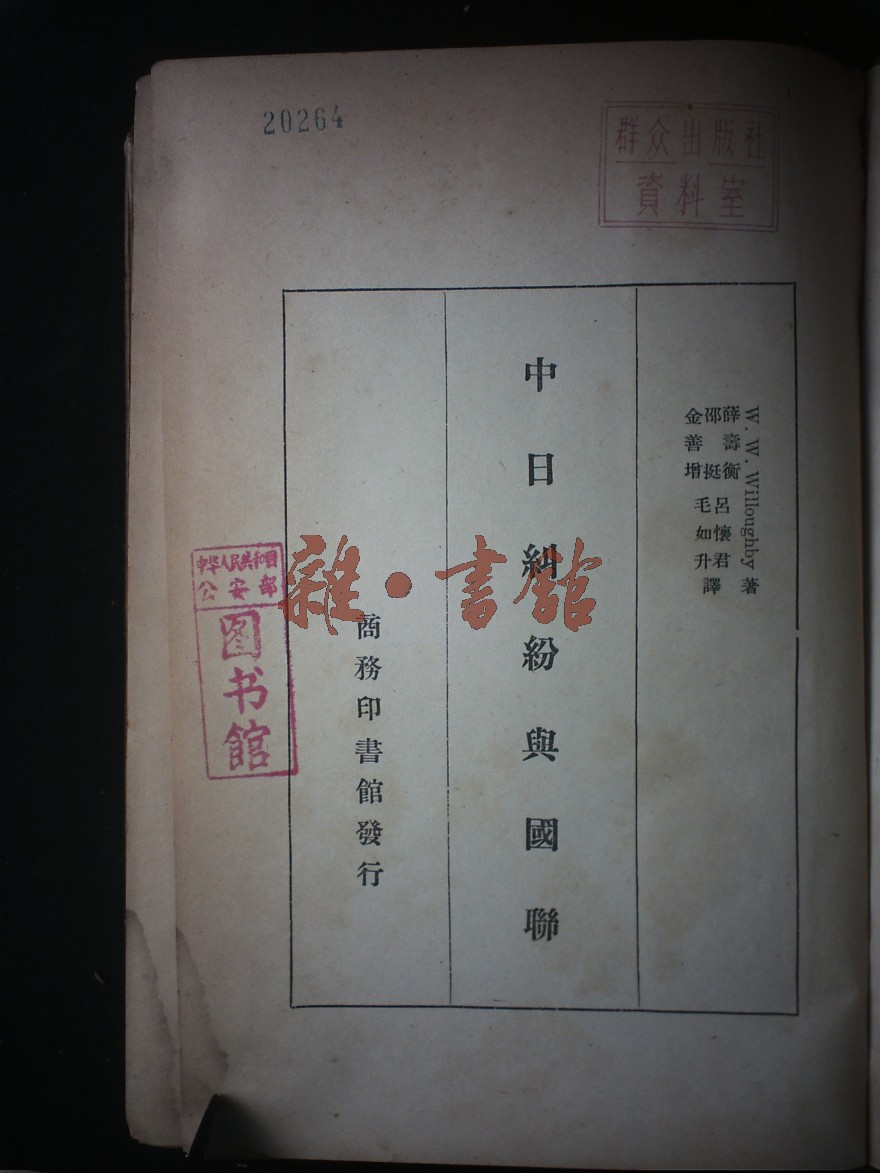 20264
群众出版社
資料室
W. W. Willoughby 著
薛壽衡 呂懷君
邵挺 毛如升 譯
金善增
中日糾紛與國聯
商務印書館發行
中华人民共和国
公安部
图书馆
雜·書館